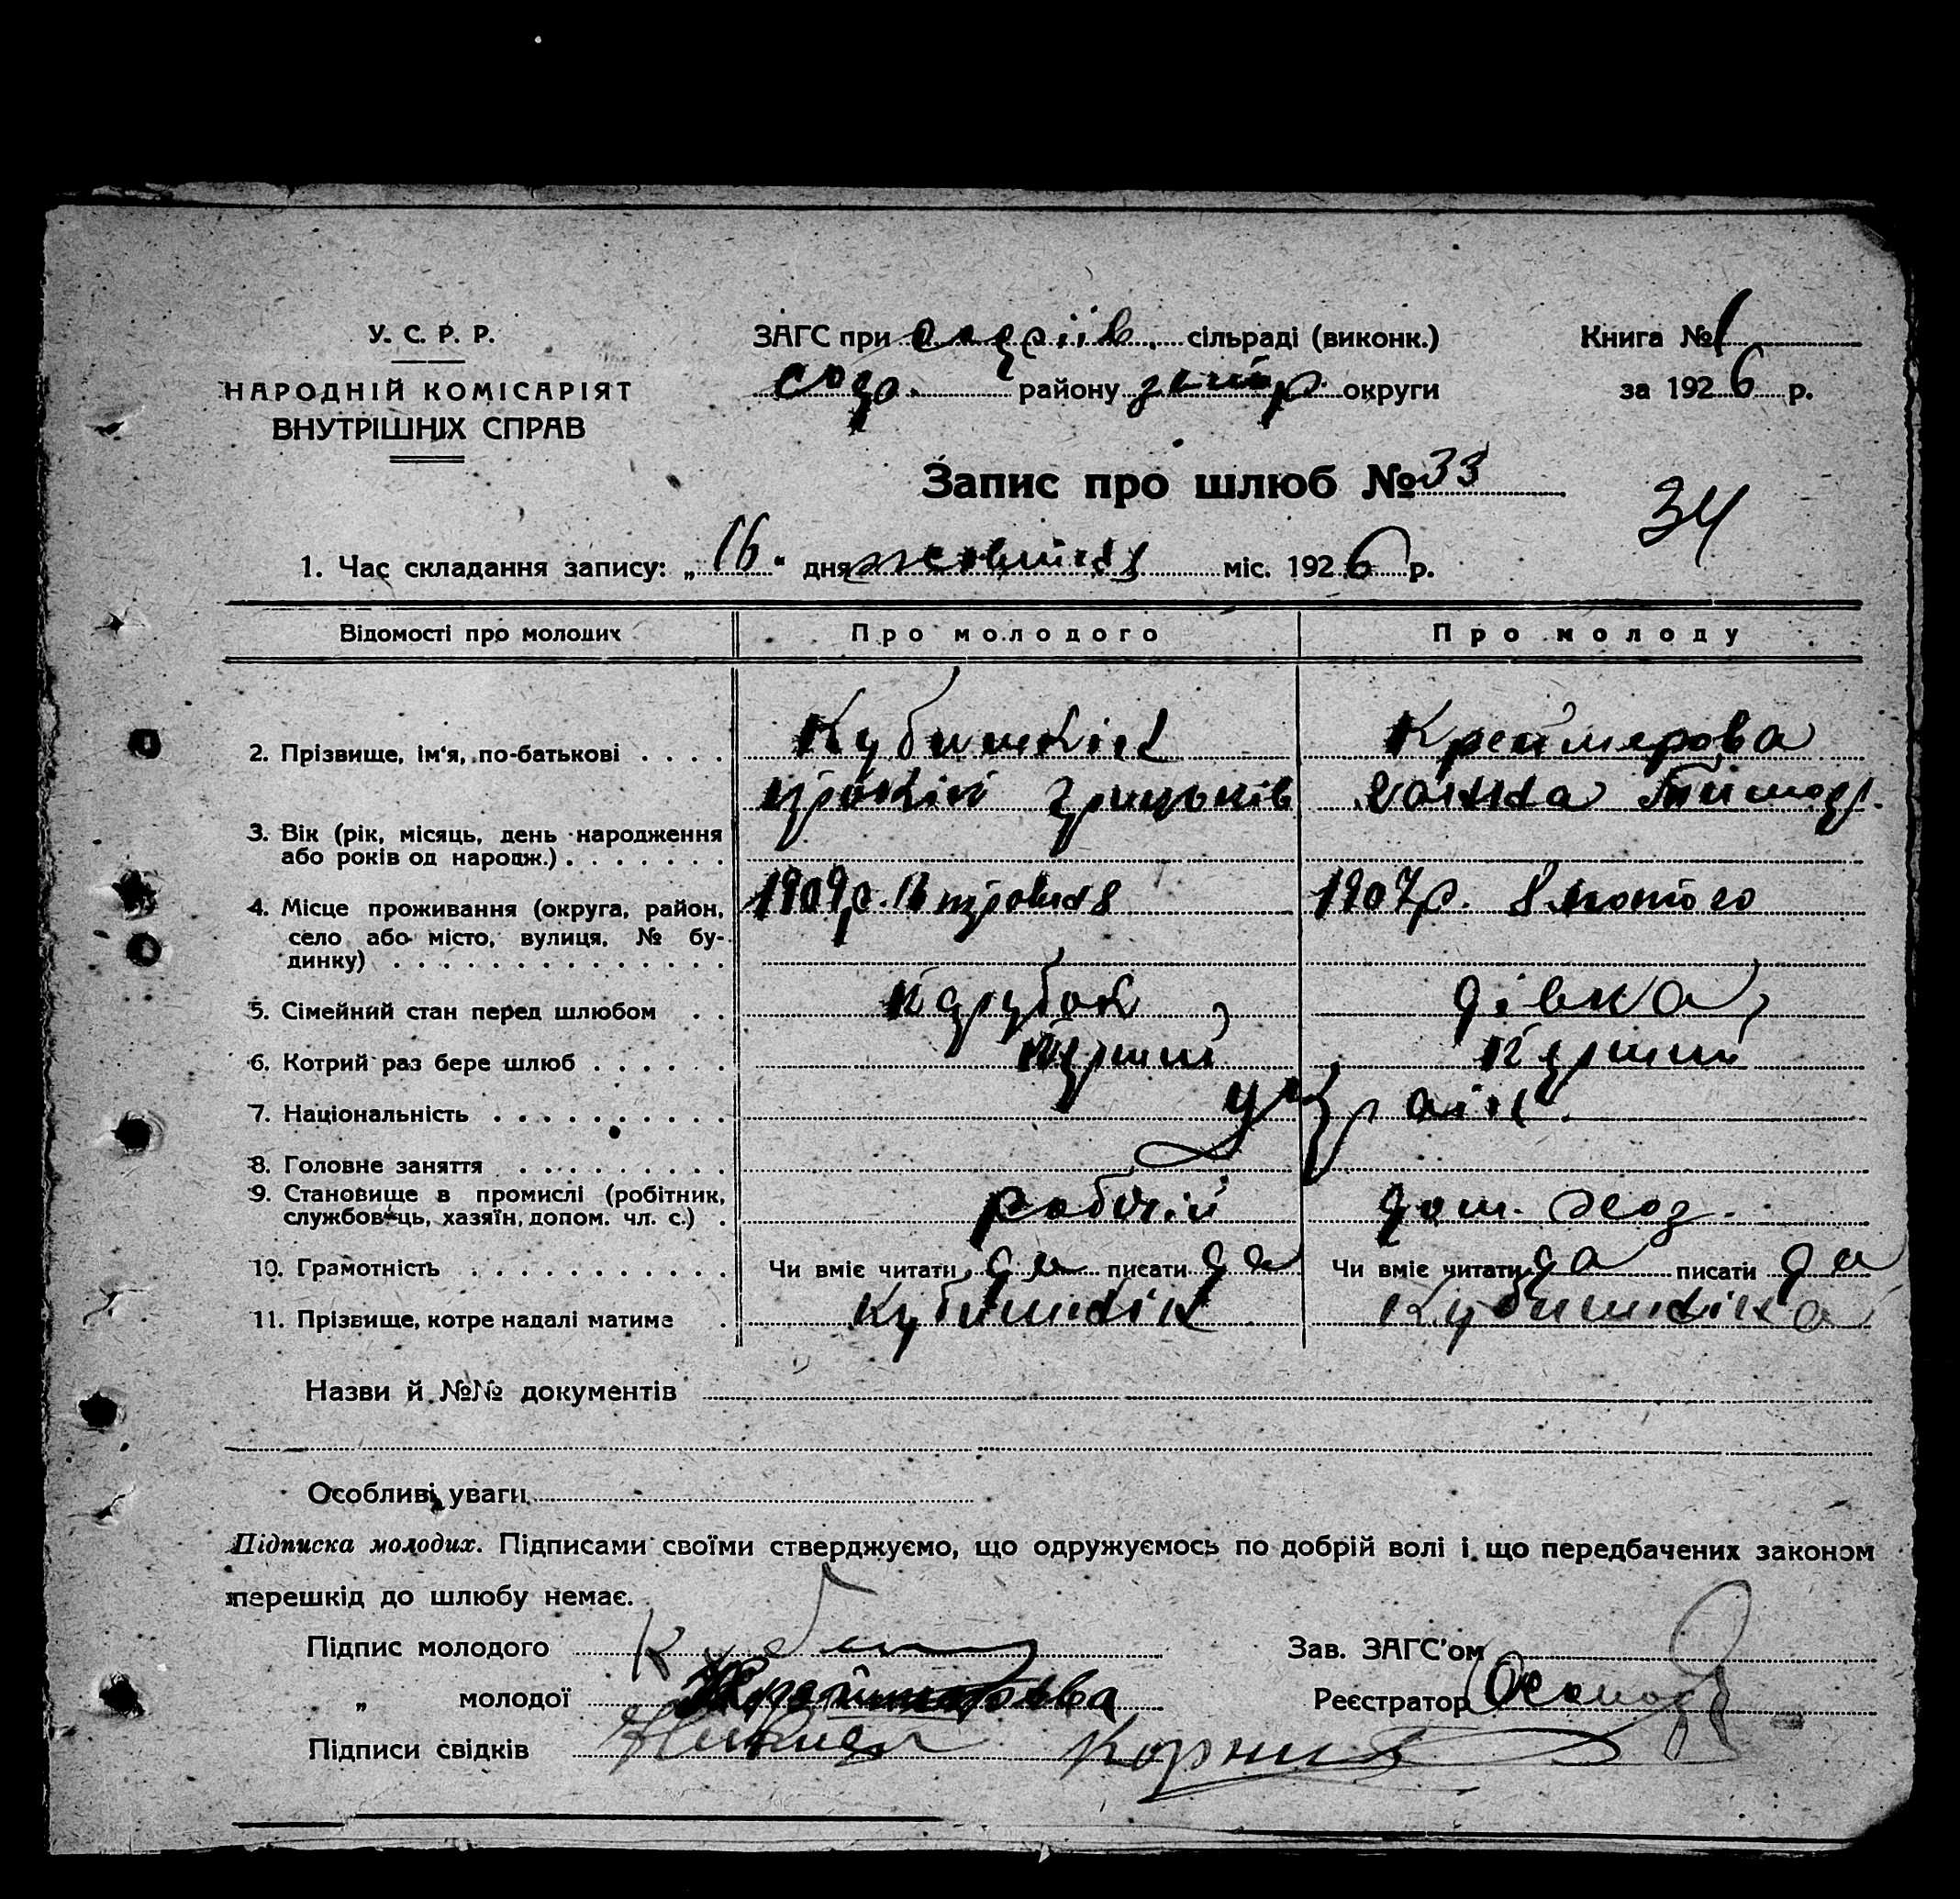 У. С. Р. Р.
НАРОДНІЙ КОМІСАРІЯТ
ВНУТРІШНІХ СПРАВ
ЗАГС при сільраді (виконк.)
району округи
Книга № 1
за 1926 р.
Запис про шлюб № 33
34
1. Час складання запису: „16“ дня жовтня міс. 1926 р.
Відомості про молодих Про молодого Про молоду
2. Прізвище, ім'я, по-батькові . . . . Кубишкін Креймерова
Грицьків Ганна Тимоф.
3. Вік (рік, місяць, день народження
або років од народж.) . . . . . . .
1909р. 1907р. 8 лютого
4. Місце проживання (округа, район,
село або місто, вулиця, № бу-
динку) . . . . . . . . . . . . . .
5. Сімейний стан перед шлюбом . . парубок, дівка,
6. Котрий раз бере шлюб . . . . . . перший перший
7. Національність . . . . . . . . . . україн.
8. Головне заняття . . . . . . . . .
9. Становище в промислі (робітник,
службовець, хазяїн, допом. чл. с.) . робочій дом. хоз.
10. Грамотність . . . . . . . . . . . Чи вміє читати да писати да Чи вміє читати да писати да
11. Прізвище, котре надалі матиме . Кубишкін Кубишкіна
Назви й №№ документів
Особливі уваги
Підписка молодих. Підписами своїми стверджуємо, що одружуємось по добрій волі і що передбачених законом
перешкід до шлюбу немає.
Підпис молодого
Зав. ЗАГС'ом
„ молодої Креймерова
Реєстратор
Підписи свідків